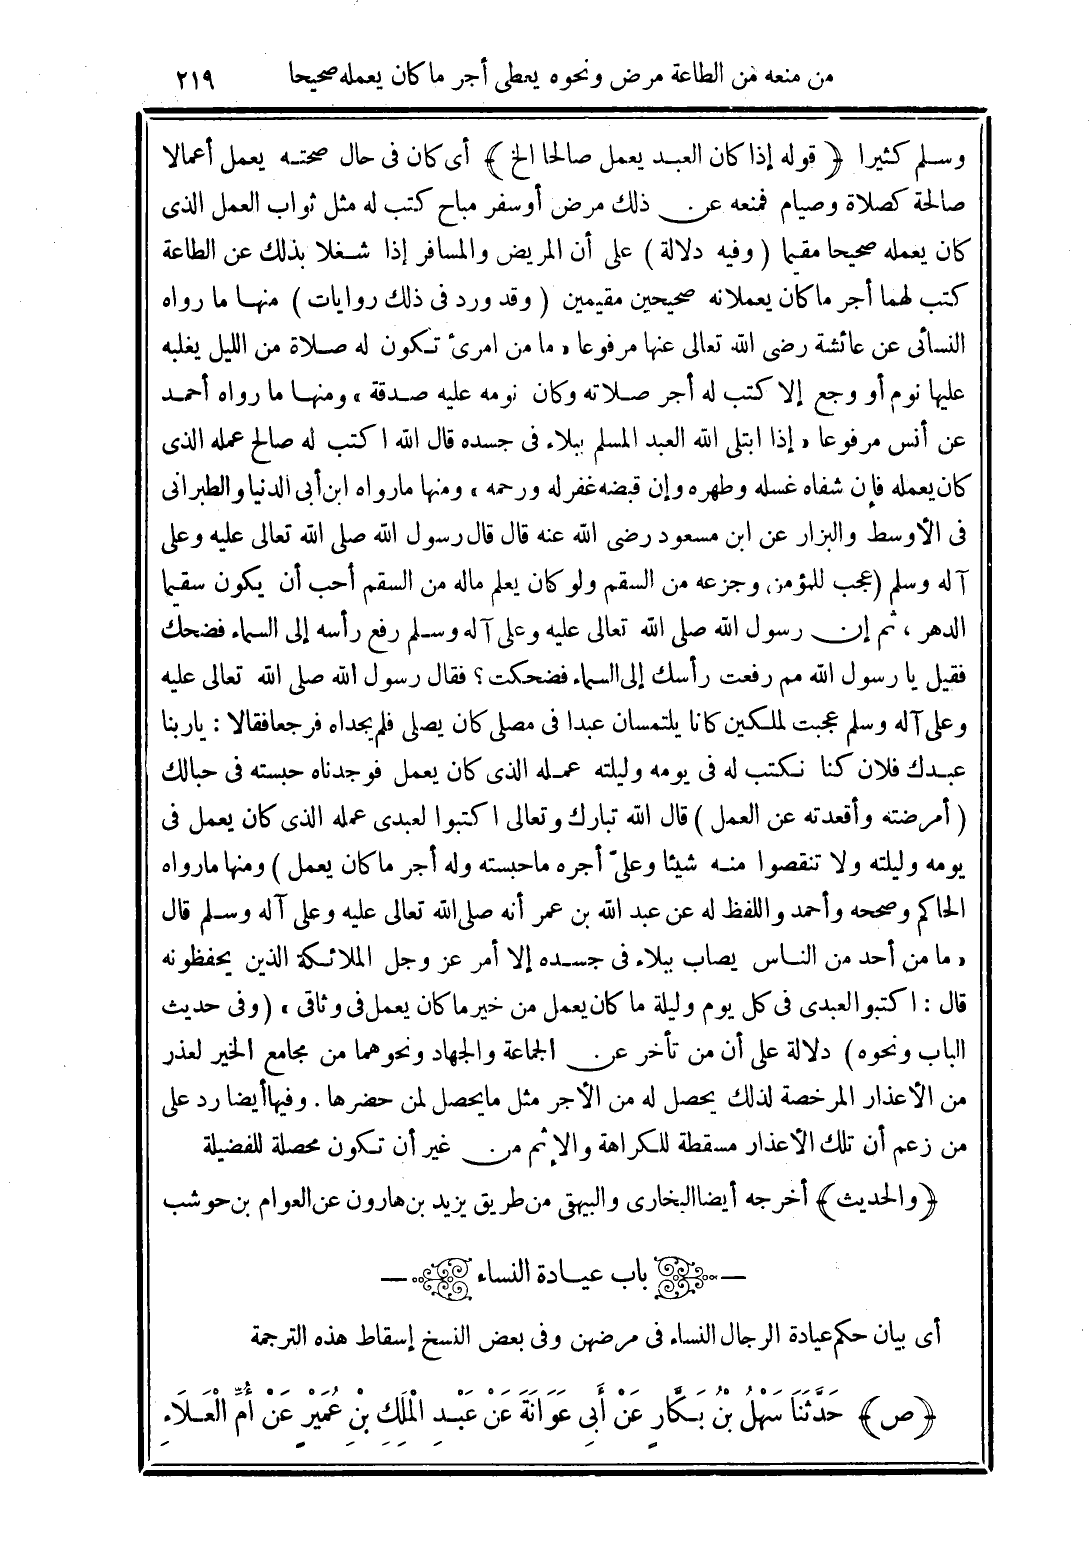 من منعه من الطاعة مرض ونحوه يعطى أجر ما كان يعمله صحيحا ٢١٩
وسلم كثيرا ﴿ قوله إذا كان العبد يعمل صالحا الخ ﴾ أى كان فى حال صحته يعمل أعمالا
صالحة كصلاة وصيام فمنعه عن ذلك مرض أو سفر مباح كتب له مثل ثواب العمل الذى
كان يعمله صحيحا مقيما ( وفيه دلالة ) على أن المريض والمسافر إذا شغلا بذلك عن الطاعة
كتب لهما أجر ما كان يعملانه صحيحين مقيمين ( وقد ورد فى ذلك روايات ) منها ما رواه
النسائى عن عائشة رضى الله تعالى عنها مرفوعا «ما من امرئ تكون له صلاة من الليل يغلبه
عليها نوم أو وجع إلا كتب له أجر صلاته وكان نومه عليه صدقة» ومنها ما رواه أحمد
عن أنس مرفوعا «إذا ابتلى الله العبد المسلم ببلاء فى جسده قال الله اكتب له صالح عمله الذى
كان يعمله فإن شفاه غسله وطهره وإن قبضه غفر له ورحمه» ومنها مارواه ابن أبى الدنيا والطبرانى
فى الأوسط والبزار عن ابن مسعود رضى الله عنه قال قال رسول الله صلى الله تعالى عليه وعلى
آله وسلم (عجب للمؤمن وجزعه من السقم ولو كان يعلم ماله من السقم أحب أن يكون سقيما
الدهر ، ثم إن رسول الله صلى الله تعالى عليه وعلى آله وسلم رفع رأسه إلى السماء فضحك
فقيل يا رسول الله مم رفعت رأسك إلى السماء فضحكت؟ فقال رسول الله صلى الله تعالى عليه
وعلى آله وسلم عجبت لملكين كانا يلتمسان عبدا فى مصلى كان يصلى فلم يجداه فرجعا فقالا : ياربنا
عبدك فلان كنا نكتب له فى يومه وليلته عمله الذى كان يعمل فوجدناه حبسته فى حبالك
( أمرضته وأقعدته عن العمل ) قال الله تبارك وتعالى اكتبوا لعبدى عمله الذى كان يعمل فى
يومه وليلته ولا تنقصوا منه شيئا وعلىّ أجره ماحبسته وله أجر ما كان يعمل ) ومنها مارواه
الحاكم وصححه وأحمد واللفظ له عن عبد الله بن عمر أنه صلى الله تعالى عليه وعلى آله وسلم قال
«ما من أحد من الناس يصاب ببلاء فى جسده إلا أمر عز وجل الملائكة الذين يحفظونه
قال : اكتبوا لعبدى فى كل يوم وليلة ما كان يعمل من خير ما كان يعمل فى وثاقى» (وفى حديث
الباب ونحوه) دلالة على أن من تأخر عن الجماعة والجهاد ونحوهما من مجامع الخير لعذر
من الأعذار المرخصة لذلك يحصل له من الأجر مثل مايحصل لمن حضرها . وفيها أيضا رد على
من زعم أن تلك الأعذار مسقطة للكراهة والإثم من غير أن تكون محصلة للفضيلة
﴿والحديث﴾ أخرجه أيضا البخارى والبيهقى من طريق يزيد بن هارون عن العوام بن حوشب
باب عيادة النساء
أى بيان حكم عيادة الرجال النساء فى مرضهن وفى بعض النسخ إسقاط هذه الترجمة
﴿ص﴾ حَدَّثَنَا سَهْلُ بْنُ بَكَّارٍ عَنْ أَبِى عَوَانَةَ عَنْ عَبْدِ الْمَلِكِ بْنِ عُمَيْرٍ عَنْ أُمِّ الْعَلَاءِ